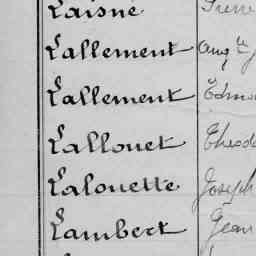 Laisné Pierre
Lallement Aug.te
Lallement Edmo
Lallouet Theod
Lalouette Joseph
Lambert Jean